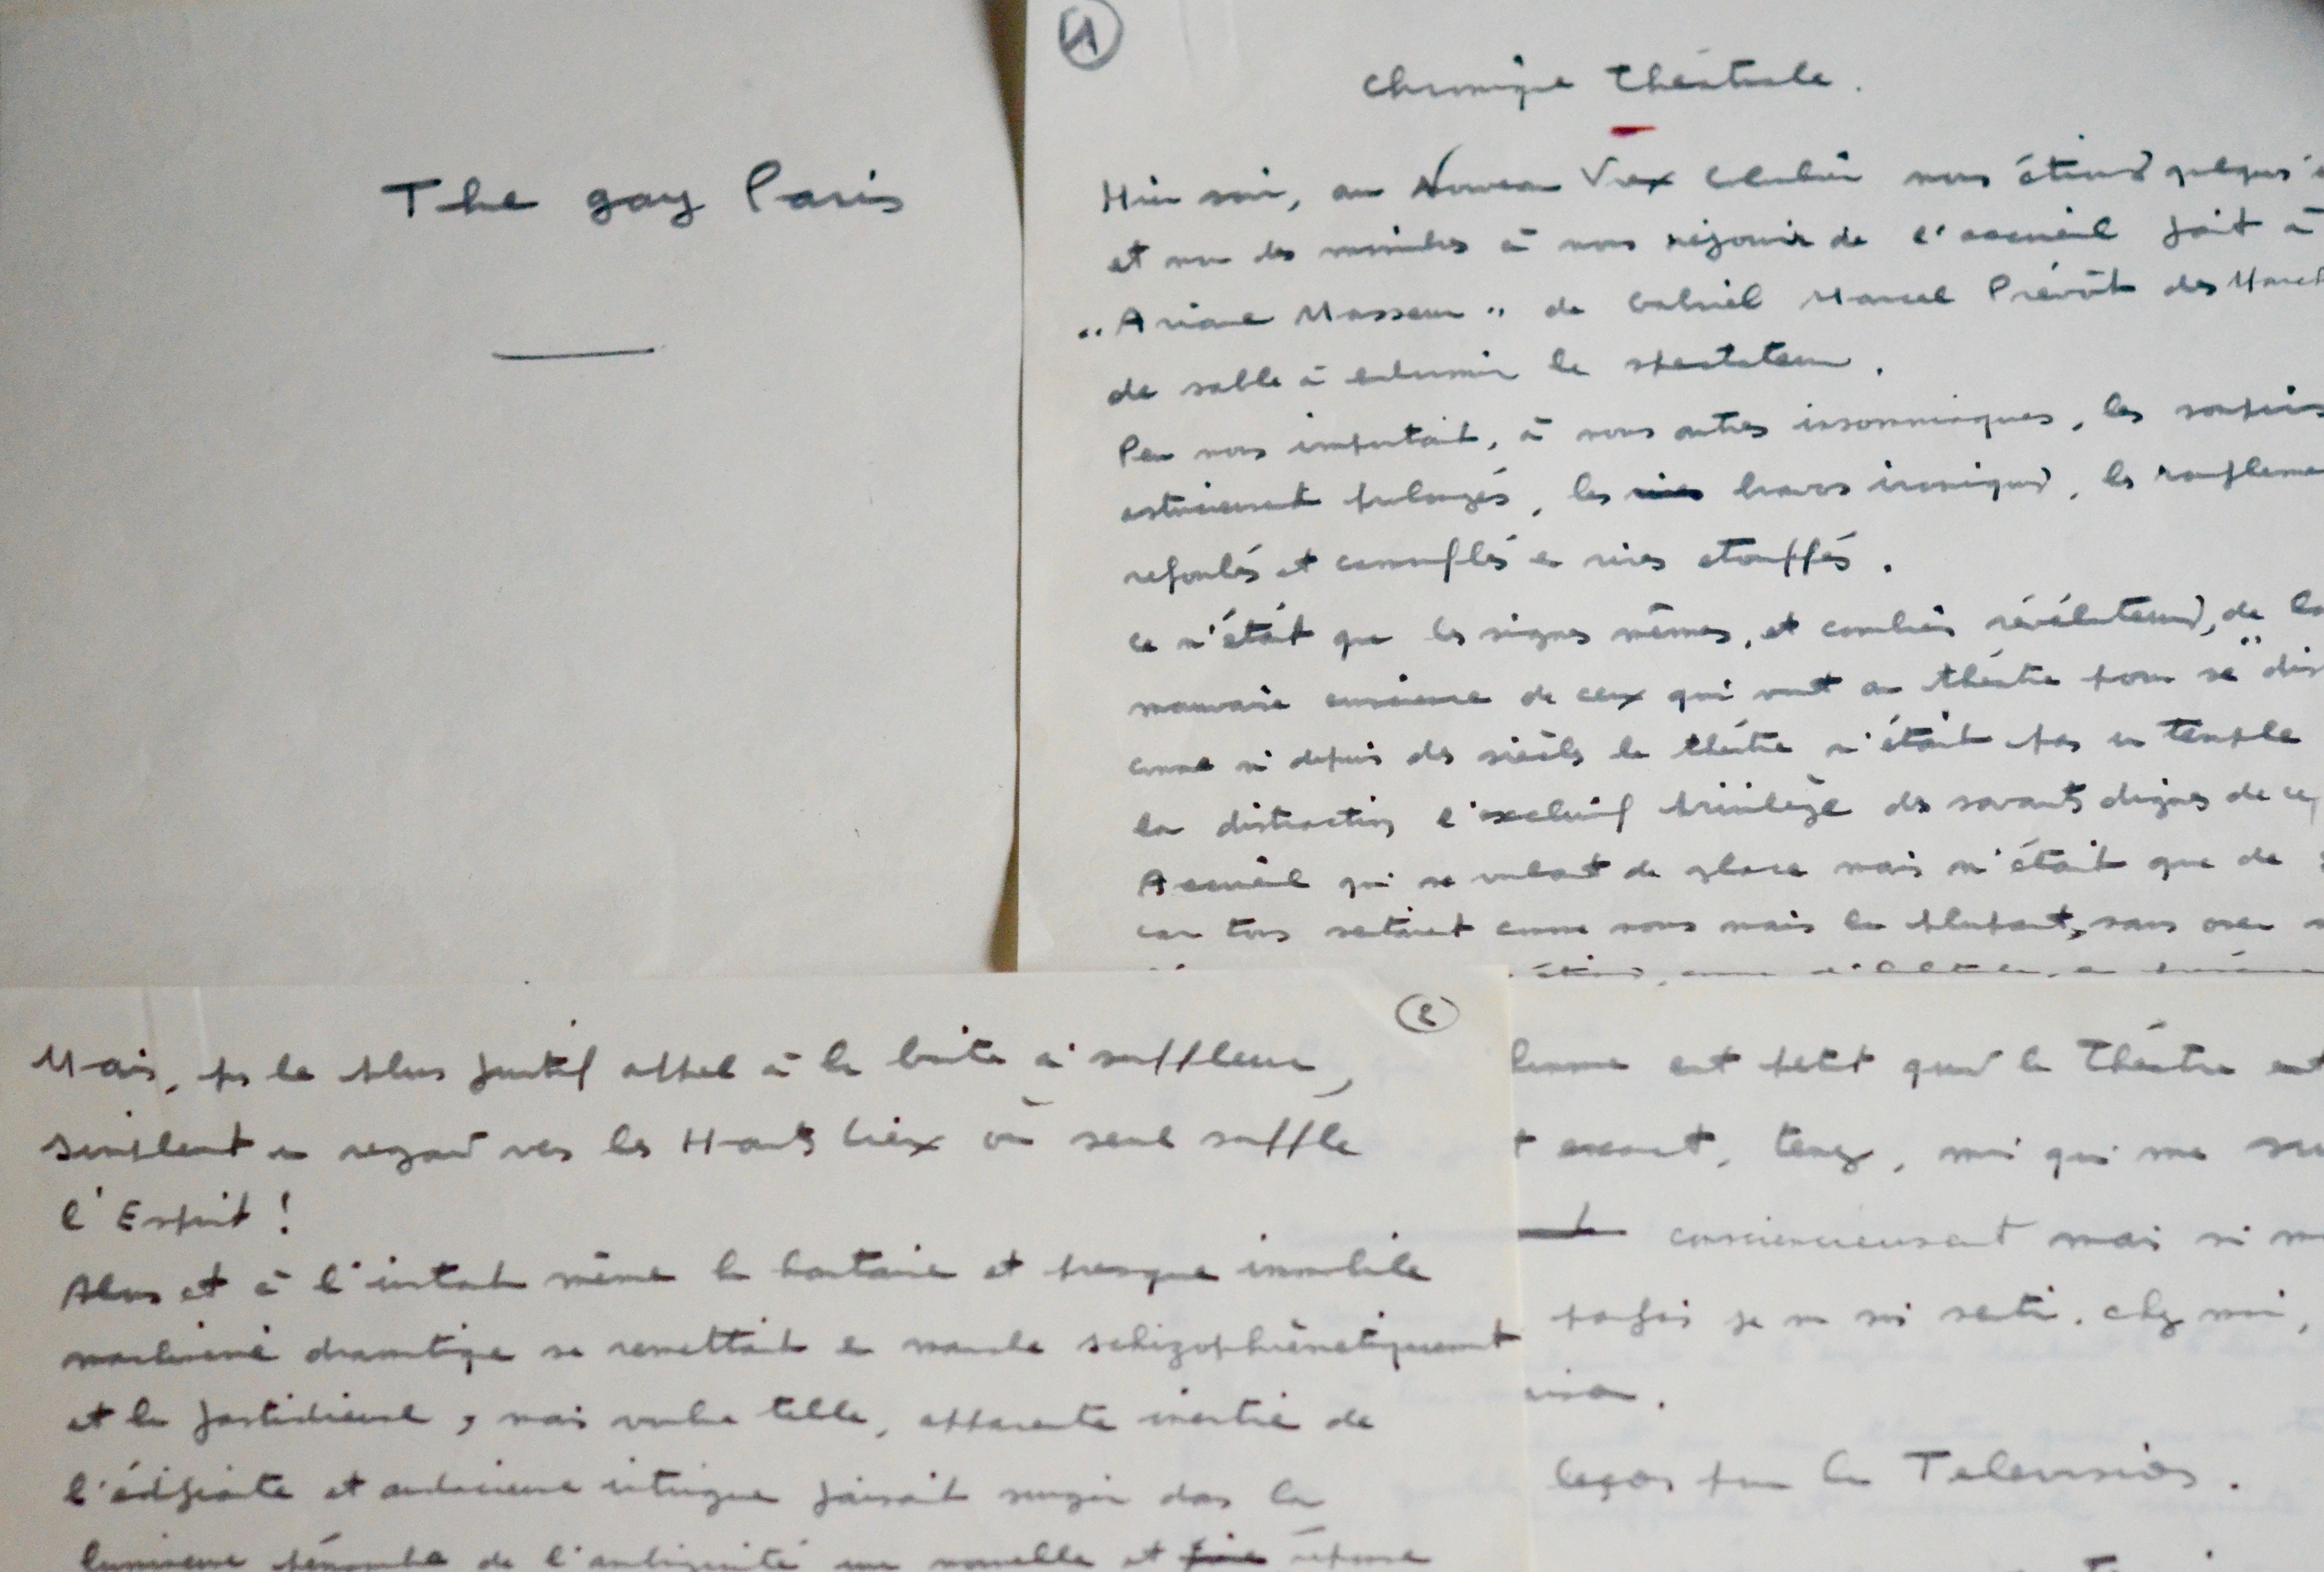 The gay Paris
1
Chronique théâtrale.
Hier soir, au Nouveau Vieux Colombier nous étions quelques
et non des moindres à nous réjouir de l'accueil fait à
"Ariane Masseur" de Gabriel Marcel Prévôt des March
de sable à endormir le spectateur.
Peu nous importait, à nous autres insomniaques, les soupirs
astucieusement prolongés, les bravos ironiques, les ronfleme
refoulés et camouflés en rires étouffés.
Ce n'était que les signes mêmes, et combien révélateurs, de la
mauvaise conscience de ceux qui vont au théâtre pour se "dis
comme si depuis des siècles le théâtre n'était pas un temple
la distraction l'exclusif privilège des savants dignes de ce
Accueil qui se voulait de glace mais n'était que de
car tous sentaient comme nous mais la plupart, sans oser
2
Mais, pas le plus furtif appel à la boîte à souffleur,
simplement un regard vers les Hauts Lieux où seul souffle
l'Esprit !
Alors et à l'instant même la hautaine et presque immobile
machinerie dramatique se remettait en marche schizophrénétiquement
et la fastidieuse, mais voulue telle, apparente inertie de
l'édifiante et audacieuse intrigue faisait surgir dans la
lumineuse pénombre de l'ambiguïté une nouvelle et réponse
homme est petit quand le Théâtre est
t exact, tenez, moi qui me
consciencieusement mais si
parfois je m'en suis senti. Chez moi,
leçon pour la Télévision.